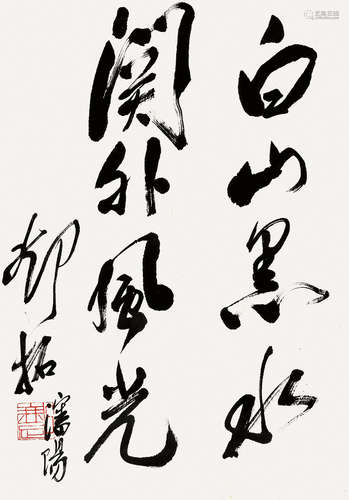 白山黑水
関外風光
鄧拓
瀋陽